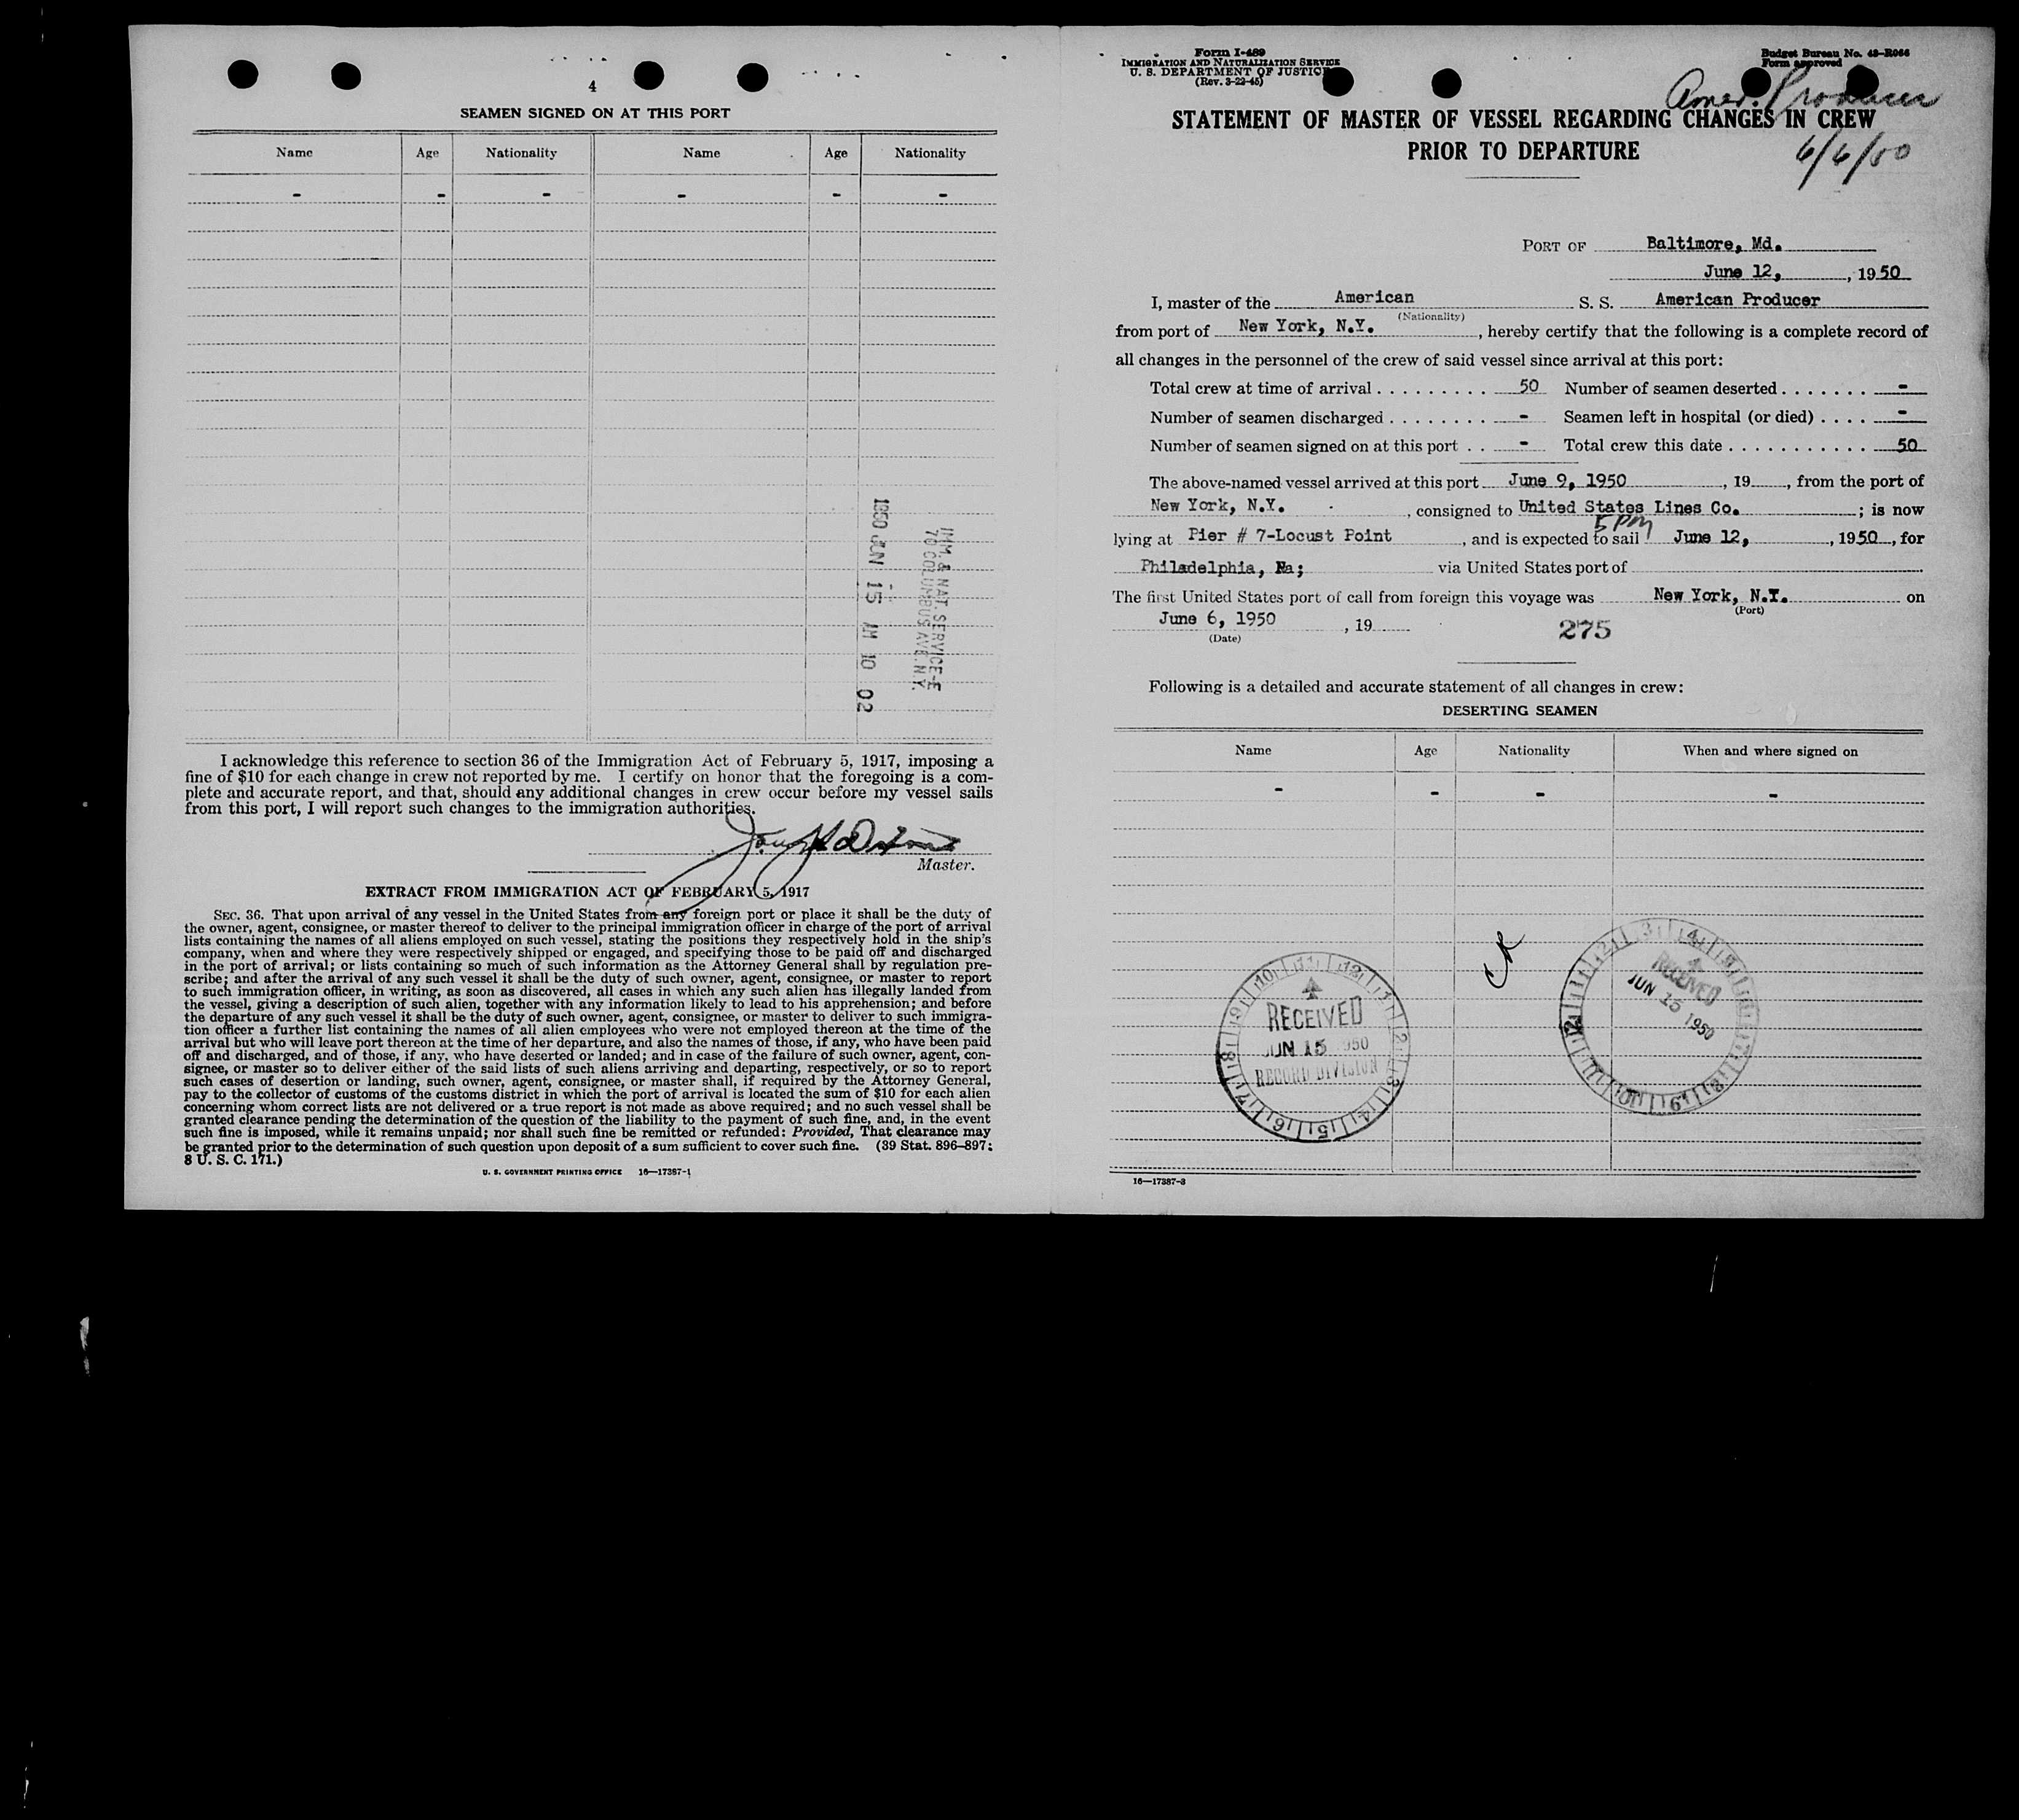 4
SEAMEN SIGNED ON AT THIS PORT
Name Age Nationality Name Age Nationality
- - - - - -
1950 JUN 15 AM 10 02
IMM. & NAT. SERVICE-E
70 COLUMBUS AVE. N.Y.
I acknowledge this reference to section 36 of the Immigration Act of February 5, 1917, imposing a
fine of $10 for each change in crew not reported by me. I certify on honor that the foregoing is a com-
plete and accurate report, and that, should any additional changes in crew occur before my vessel sails
from this port, I will report such changes to the immigration authorities.
Master.
EXTRACT FROM IMMIGRATION ACT OF FEBRUARY 5, 1917
SEC. 36. That upon arrival of any vessel in the United States from any foreign port or place it shall be the duty of
the owner, agent, consignee, or master thereof to deliver to the principal immigration officer in charge of the port of arrival
lists containing the names of all aliens employed on such vessel, stating the positions they respectively hold in the ship's
company, when and where they were respectively shipped or engaged, and specifying those to be paid off and discharged
in the port of arrival; or lists containing so much of such information as the Attorney General shall by regulation pre-
scribe; and after the arrival of any such vessel it shall be the duty of such owner, agent, consignee, or master to report
to such immigration officer, in writing, as soon as discovered, all cases in which any such alien has illegally landed from
the vessel, giving a description of such alien, together with any information likely to lead to his apprehension; and before
the departure of any such vessel it shall be the duty of such owner, agent, consignee, or master to deliver to such immigra-
tion officer a further list containing the names of all alien employees who were not employed thereon at the time of the
arrival but who will leave port thereon at the time of her departure, and also the names of those, if any, who have been paid
off and discharged, and of those, if any, who have deserted or landed; and in case of the failure of such owner, agent, con-
signee, or master so to deliver either of the said lists of such aliens arriving and departing, respectively, or so to report
such cases of desertion or landing, such owner, agent, consignee, or master shall, if required by the Attorney General,
pay to the collector of customs of the customs district in which the port of arrival is located the sum of $10 for each alien
concerning whom correct lists are not delivered or a true report is not made as above required; and no such vessel shall be
granted clearance pending the determination of the question of the liability to the payment of such fine, and, in the event
such fine is imposed, while it remains unpaid; nor shall such fine be remitted or refunded: Provided, That clearance may
be granted prior to the determination of such question upon deposit of a sum sufficient to cover such fine. (39 Stat. 896-897;
8 U. S. C. 171.)
U. S. GOVERNMENT PRINTING OFFICE 16—17387-1
Form I-489
IMMIGRATION AND NATURALIZATION SERVICE
U. S. DEPARTMENT OF JUSTICE
(Rev. 3-22-45)
Budget Bureau No. 43-R066
Form approved
Amer. Producer
STATEMENT OF MASTER OF VESSEL REGARDING CHANGES IN CREW
PRIOR TO DEPARTURE
6/6/50
PORT OF Baltimore, Md.
June 12, , 1950
I, master of the American S. S. American Producer
(Nationality)
from port of New York, N.Y. , hereby certify that the following is a complete record of
all changes in the personnel of the crew of said vessel since arrival at this port:
Total crew at time of arrival . . . . . . . . . 50 Number of seamen deserted . . . . . . . -
Number of seamen discharged . . . . . . . . - Seamen left in hospital (or died) . . . . -
Number of seamen signed on at this port . . - Total crew this date . . . . . . . . . . . 50
The above-named vessel arrived at this port June 9, 1950 , 19 , from the port of
New York, N.Y. , consigned to United States Lines Co. ; is now
5 PM
lying at Pier # 7-Locust Point , and is expected to sail June 12, , 1950 , for
Philadelphia, Pa; via United States port of
The first United States port of call from foreign this voyage was New York, N.Y. on
(Port)
June 6, 1950 , 19
(Date)
275
Following is a detailed and accurate statement of all changes in crew:
DESERTING SEAMEN
Name Age Nationality When and where signed on
- - - -
RECEIVED
JUN 15 1950
RECORD DIVISION
RECEIVED
JUN 15 1950
16—17387-3